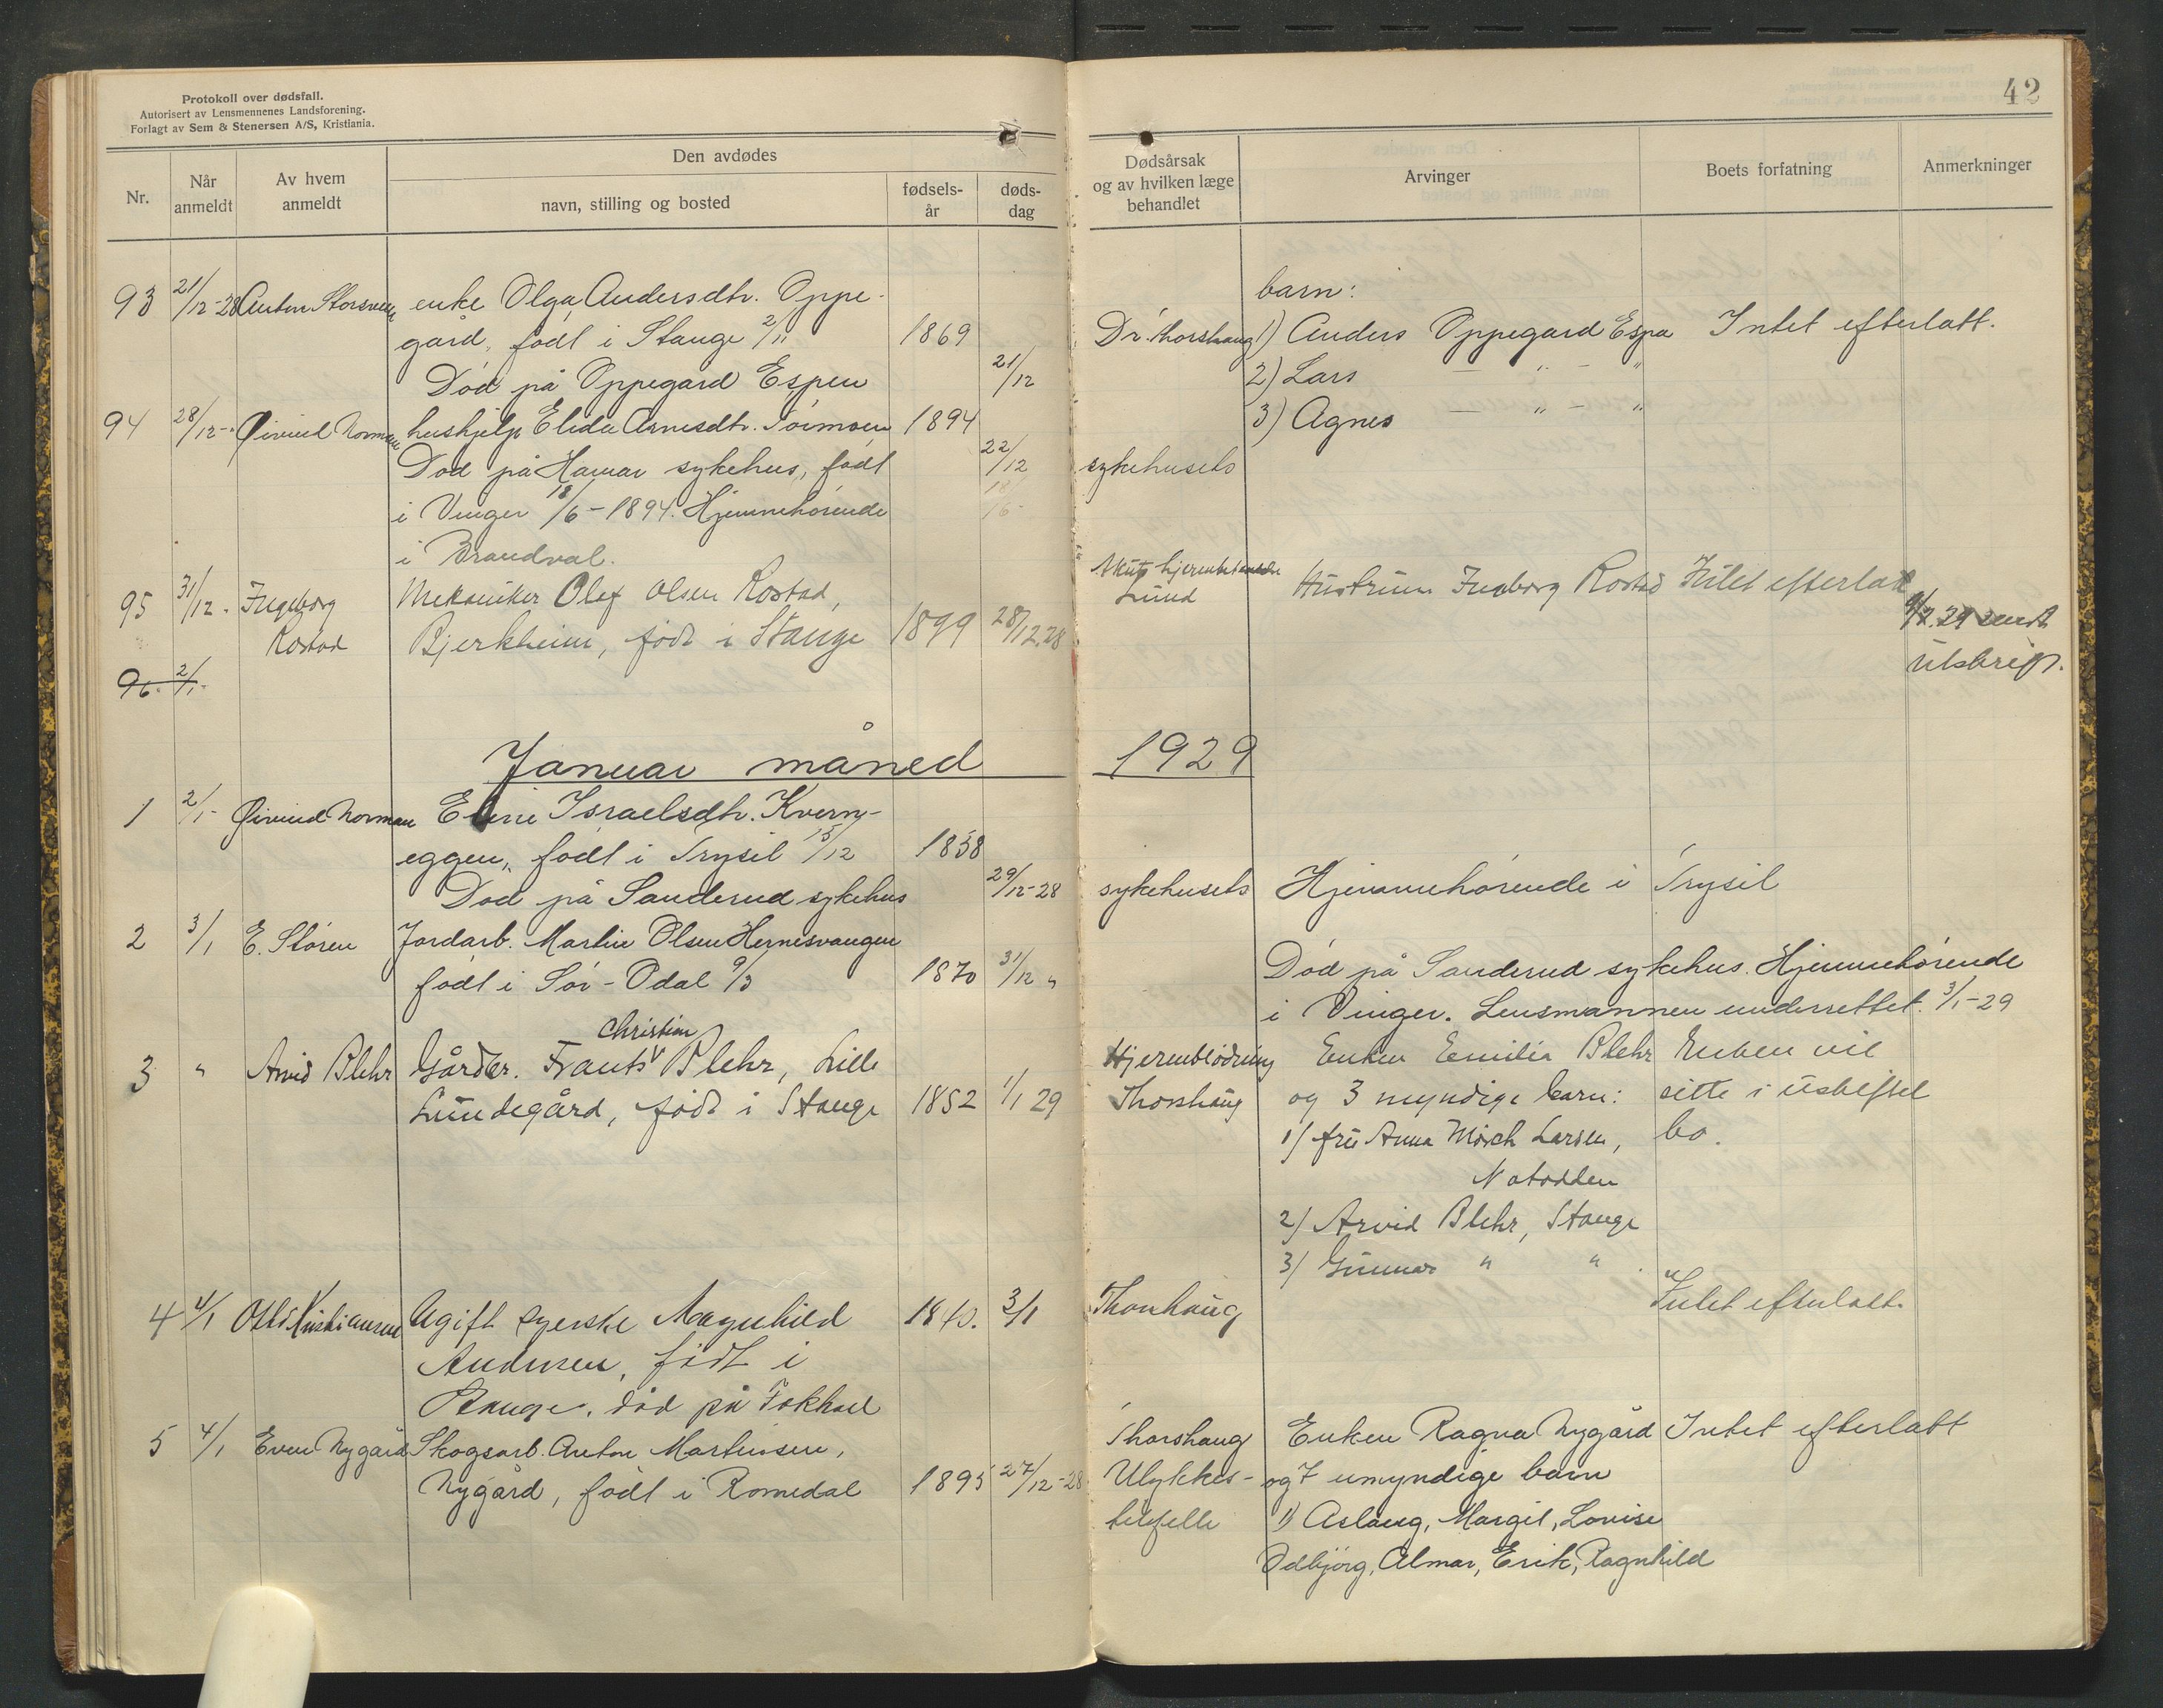 Protokoll over dødsfall.
Autorisert av Lensmennenes Landsforening.
Forlagt av Sem & Stenersen A/S, Kristiania.
42
Nr.
Når anmeldt
Av hvem anmeldt
Den avdødes
navn, stilling og bosted
fødsels-år
døds-dag
Dødsårsak og av hvilken læge behandlet
Arvinger
Boets forfatning
Anmerkninger
93 21/12-28 Anton enke Olga Andersdtr. Oppe-
gård, født i Stange 2/11 1869
Død på Oppegard Espen 21/12
barn:
Dr. Thorshaug 1) Anders Oppegard Espa Intet efterlatt.
2) Lars — " — "
3) Agnes — " — "
94 28/12- Øivind Norman hushjelp Elida Arnesdtr. 1894
Død på Hamar sykehus, født 22/12 sykehusets
i Vinger 18/6-1894. Hjemmehørende
i Brandval.
95 31/12. Ingeborg Mekaniker Olef Olsen Rostad,
Rostad Bjerkheim, født i Stange 1899 28/12.28
Akut
Lund Hustruen Ingeborg Rostad Intet efterlatt
29 sendt
utskrift.
96. 2/1-
Januar måned 1929
1 2/1- Øivind Norman Eline Israelsdtr. Kvern-
eggen, født i Trysil 15/12 1858
Død på Sanderud sykehus 29/12-28 sykehusets Hjemmehørende i Trysil
2 3/1 E. Støren Jordarb. Martin Olsen Hernesvangen
født i Sør-Odal 9/3 1870 31/12 "
Død på Sanderud sykehus. Hjemmehørende
i Vinger. Lensmannen underrettet. 3/1-29
3 " Arvid Blehr Gårdbr. Frants Christian Blehr, Lille
Lundegård, født i Stange 1852 1/1 29
Hjerneblødning Enken Emilia Blehr Enken vil
Thorshaug og 3 myndige barn: sitte i uskiftet
1) fru Anna Mørch Larsen, bo.
Notodden
2) Arvid Blehr, Stange
3) Gunnar " "
4 4/1 Otto Kristiansen Ugift syerske Magnhild 1840. 3/1 Thorshaug Intet efterlatt.
Andersen, født i
Stange. død på Fokhol
5 4/1 Even Nygård Skogsarb. Anton Martinsen,
Nygård, født i Romedal 1895 27/12-28
Thorshaug Enken Ragna Nygård Intet efterlatt
Ulykkes- og 7 umyndige barn
tilfelle 1) Aslaug, Margit, Lovise
Odbjörg, Almar, Erik, Ragnhild